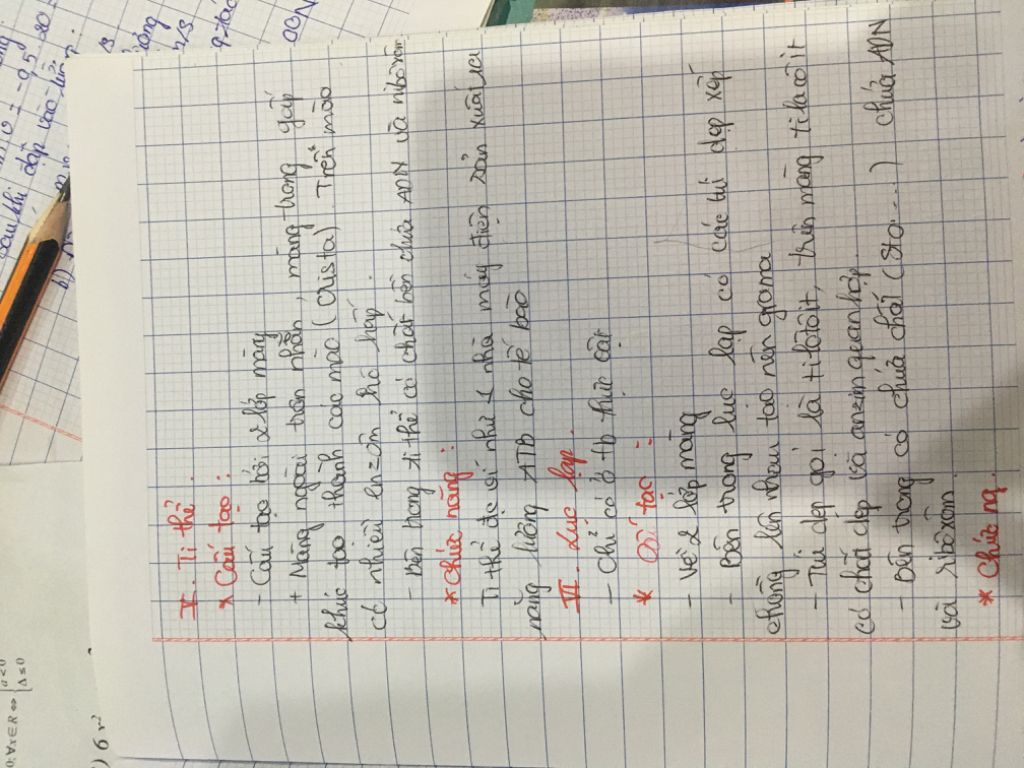 V. Ti thể.
* Cấu tạo:
- Cấu tạo bởi 2 lớp màng
+ Màng ngoài trơn nhẵn, màng trong gấp
khúc tạo thành các mào (crista) Trên mào
có nhiều enzôm hô hấp.
- Bên trong ti thể có chất nền chứa ADN và ribôxôm
* Chức năng:
Ti thể đc ví như 1 nhà máy điện sản xuất ra
năng lượng ATB cho tế bào
VI. Lục lạp.
- Chỉ có ở tb thực vật
* Cấu tạo:
- Về 2 lớp màng
- Bên trong lục lạp có các túi dẹp xếp
chồng lên nhau tạo nên grana
- Túi dẹp gọi là tilatôit, trên màng tilacôit
có chất dẹp và enzim quan hợp.
- Bên trong có chứa chất (Stro...) chứa ADN
và ribôxôm.
* Chức nq.
sau khi đập vào
ADN
b)
0; ∀x∈R ⇔ { a < 0
Δ ≤ 0
) 6x²